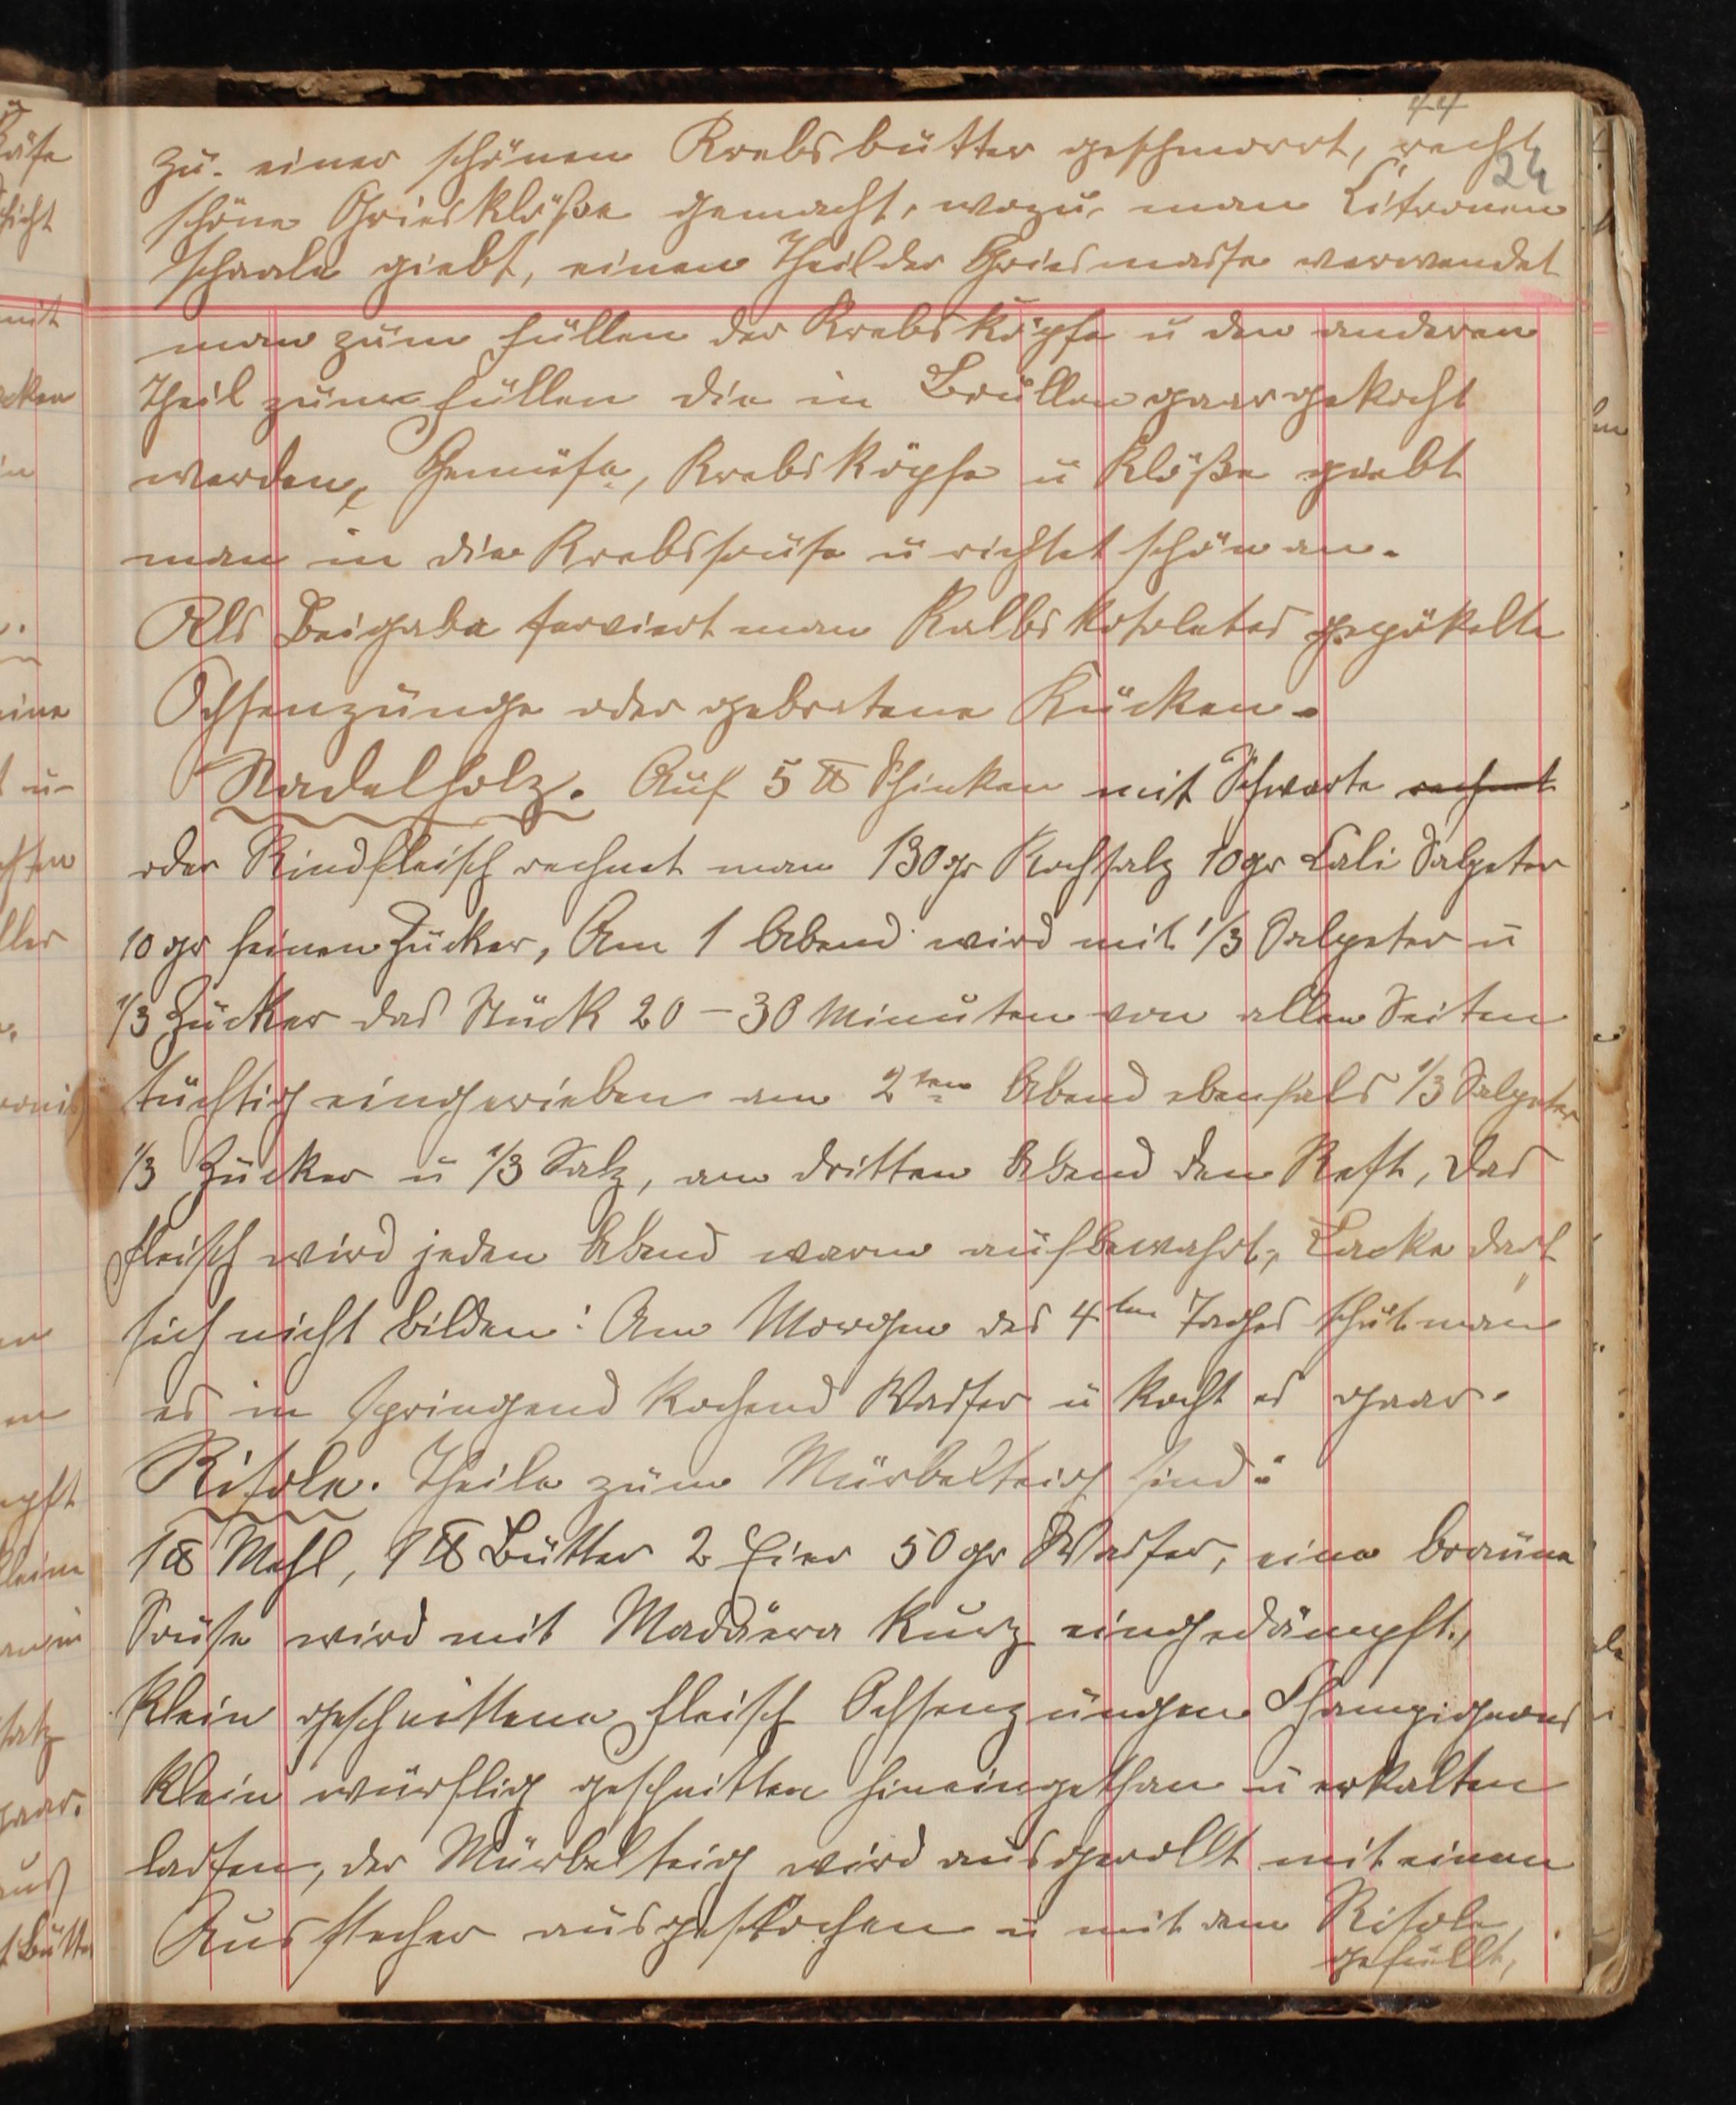 44
24
zu einer schönen Krebsbutter geschmorrt, recht
schöne Griesklöße gemacht, wozu man Citronen
schaale giebt, einen Theil der Griesmasse verwendet
man zum füllen der Krebsköpfe u den anderen
Theil zum füllen die in Boullon gaar gekocht
werden, Gemüse, Krebsköpfe u Klöße giebt
man in die Krebssauße u richtet schön an.
Als Beigabe serviert man Kalbskotelettes gepökelte
Ochsenzunge oder gebratene Kücken.
Nadelholz. Auf 5 ℔ Schinken mit Schwarte rechnet
oder Rindfleisch rechnet man 130 gr Kochsalz 10 gr Kali Salpeter
10 gr feinen Zucker, Am 1 Abend wird mit 1/3 Salpeter u
1/3 Zucker das Stück 20 – 30 Minuten von allen Seiten
tüchtig eingerieben am 2ten Abend ebenfals 1/3 Salpeter
1/3 Zucker u 1/3 Salz, am dritten Abend den Rest, das
fleisch wird jeden Abend warm aufbewahrt, Lacke darf
sich nicht bilden: Am Morgen des 4ten Tages thut man
es in springend kochend Wasser u kocht es gaar.
Risole. Theile zum Mürbelteig sind:
1 ℔ Mehl, 1 ℔ Butter 2 Eier 50 gr Wasser, eine braune
Sauße wird mit Madäera kurz eingedämpft,
klein geschnittene fleisch Ochsenzungen Champignons
klein würflig geschnitten hineingethan u erkalten
lassen, der Mürbelteig wird ausgerollt mit einem
Ausstecher ausgestochen u mit dem Risole
gefüllt,